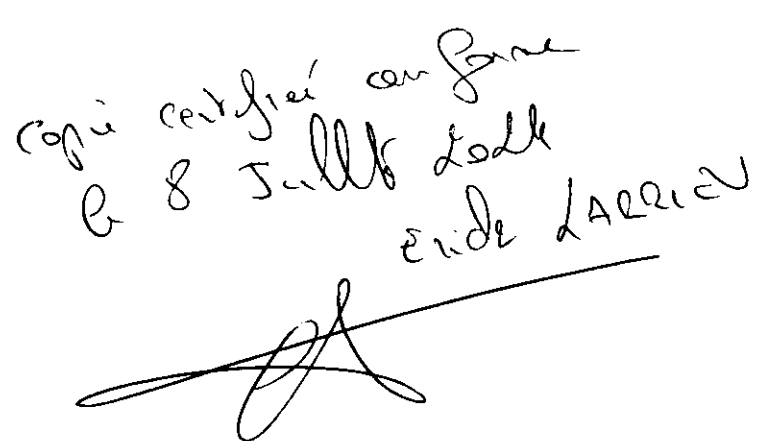 Copie certifiée conforme
le 8 Juillet 2024
LARRIEU